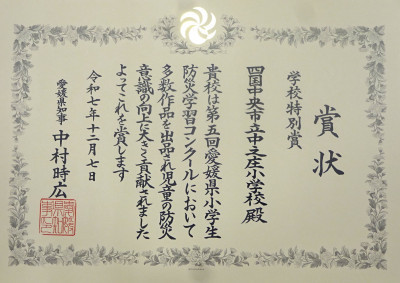 賞状
学校特別賞
四国中央市立中之庄小学校殿
貴校は第五回愛媛県小学生
防災学習コンクールにおいて
多数作品を出品され児童の防災
意識の向上に大きく貢献されました
よってこれを賞します
令和七年十二月七日
愛媛県知事 中村時広
愛媛県知事之印